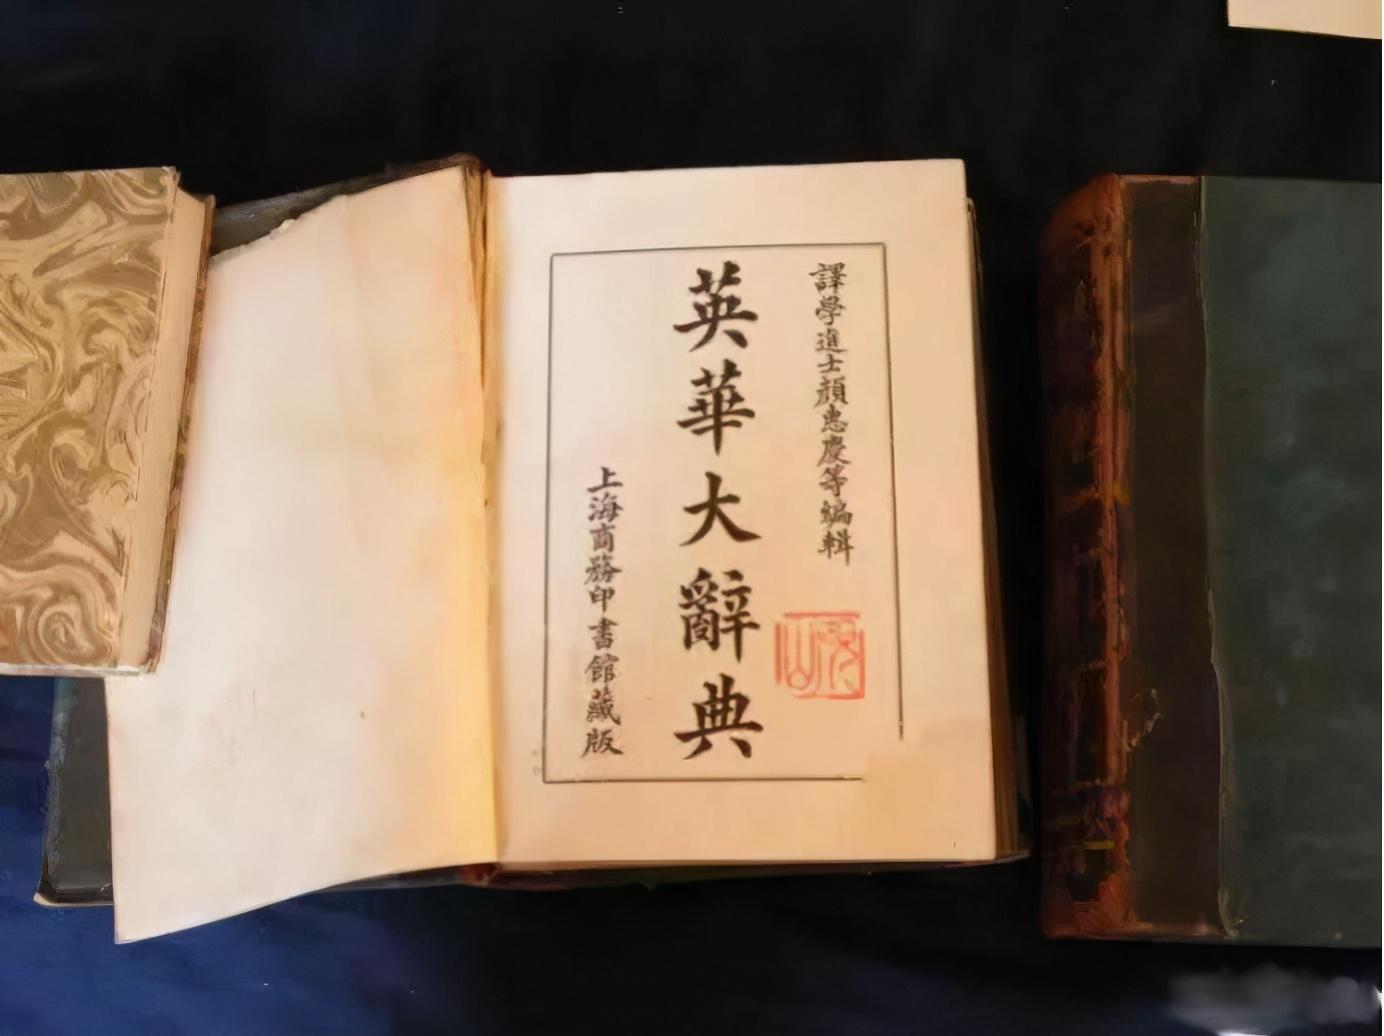 譯學進士顏惠慶等編輯
英華大辭典
上海商務印書館藏版